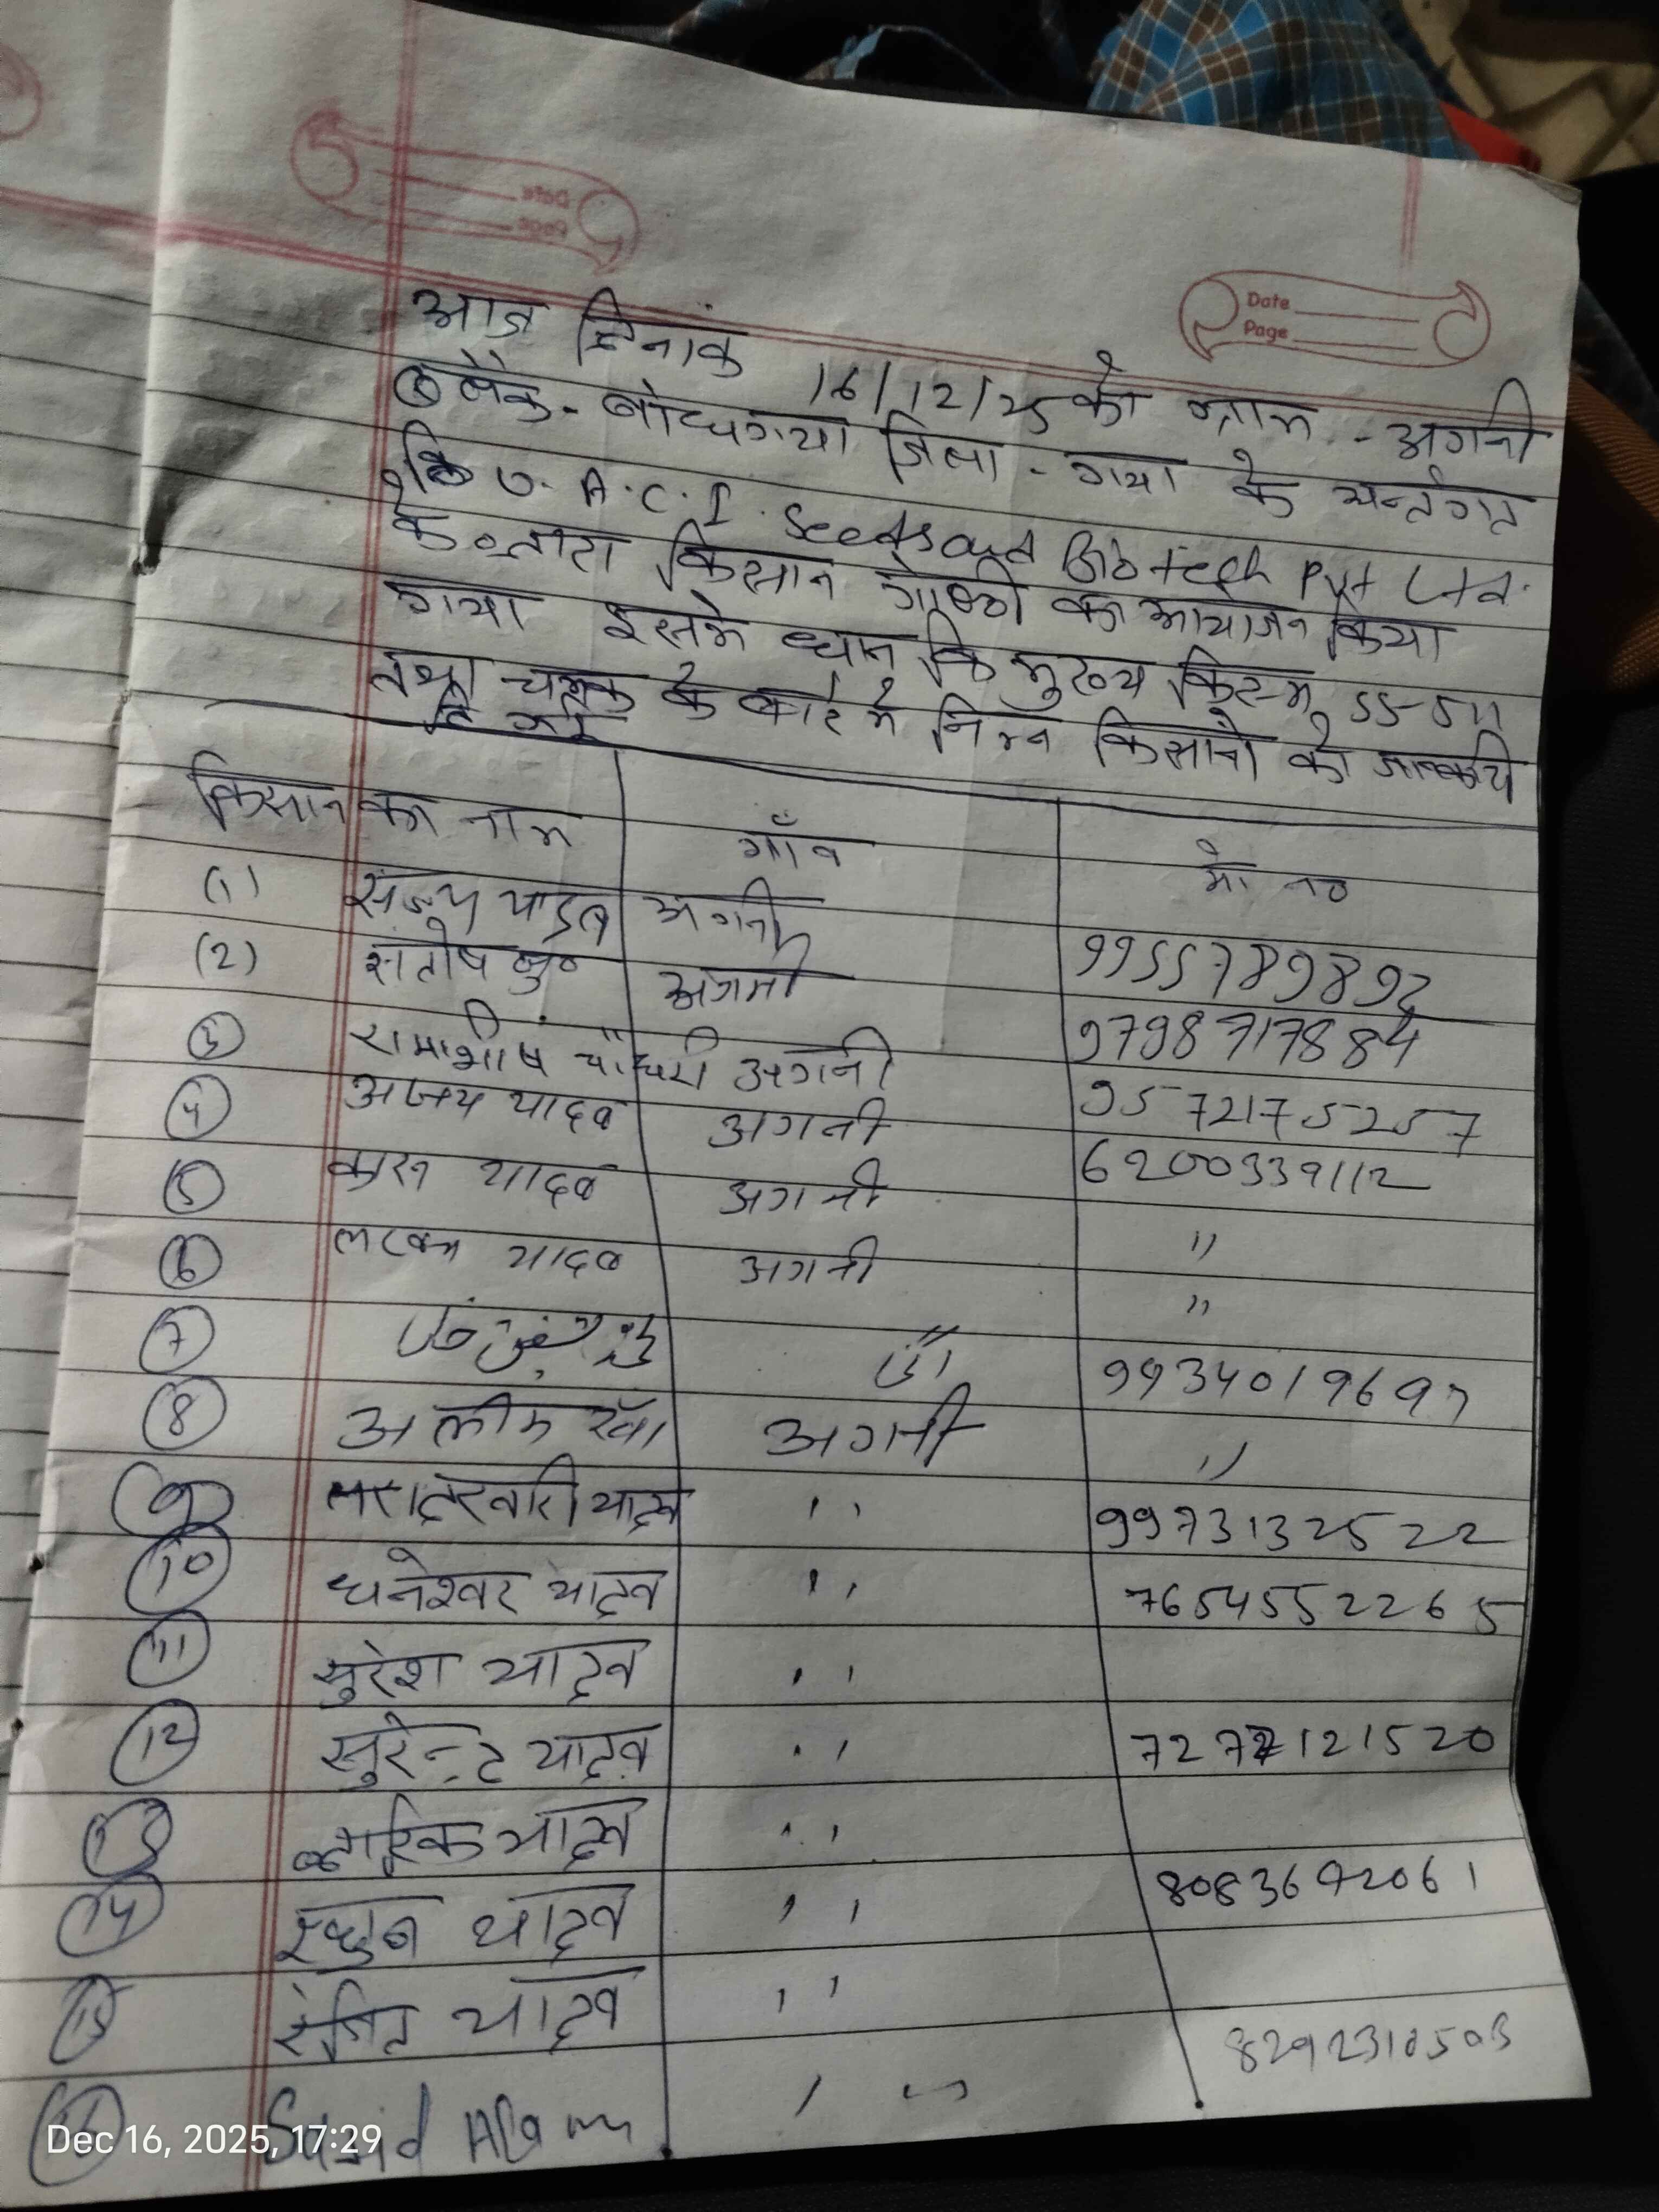 Date
Page
आज दिनांक 16/12/25 को ग्राम - अगनी
ब्लॅक - बोधगया जिला - गया के अर्न्तगत
कि U.A.C.I. Seeds and Biotech Pvt Ltd.
के द्वारा किसान गोष्ठी का आयोजन किया
गया इसमे धान कि मुख्य किस्म SS-511
तथा चमक के बारे मे निम्न किसानो को जानकारी
दि गई
किसान का नाम गाँव मो न०
(1) संजय यादव अगनी 9955789892
(2) संतोष कु० अगनी 9798717884
③ रामाशीष चौधरी अगनी 9572175257
④ अजय यादव अगनी 6200339112
⑤ कारु यादव अगनी "
⑥ लटका यादव अगनी "
⑦ 9934019697
⑧ अलीम खाँ अगनी "
⑨ यादव " 9973132522
⑩ धनेश्वर यादव " 7654552265
⑪ सुरेश यादव "
⑫ सुरेन्द्र यादव " 7277121520
⑬ यादव "
⑭ यादव " 8083692061
⑮ रंजित यादव "
⑯ Alam " 8292310503
Dec 16, 2025, 17:29